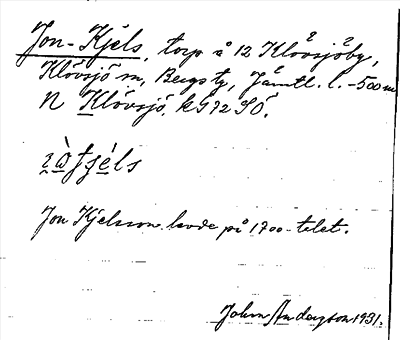 Jon-Kjels, torp å 12 Klövsjöby,
Klövsjö sn, Bergs tg, Jämtl. l. -500 m
N Klövsjö, k G 72 SÖ.
Jon Kjelsson levde på 1700-talet.
John Anderson 1931.